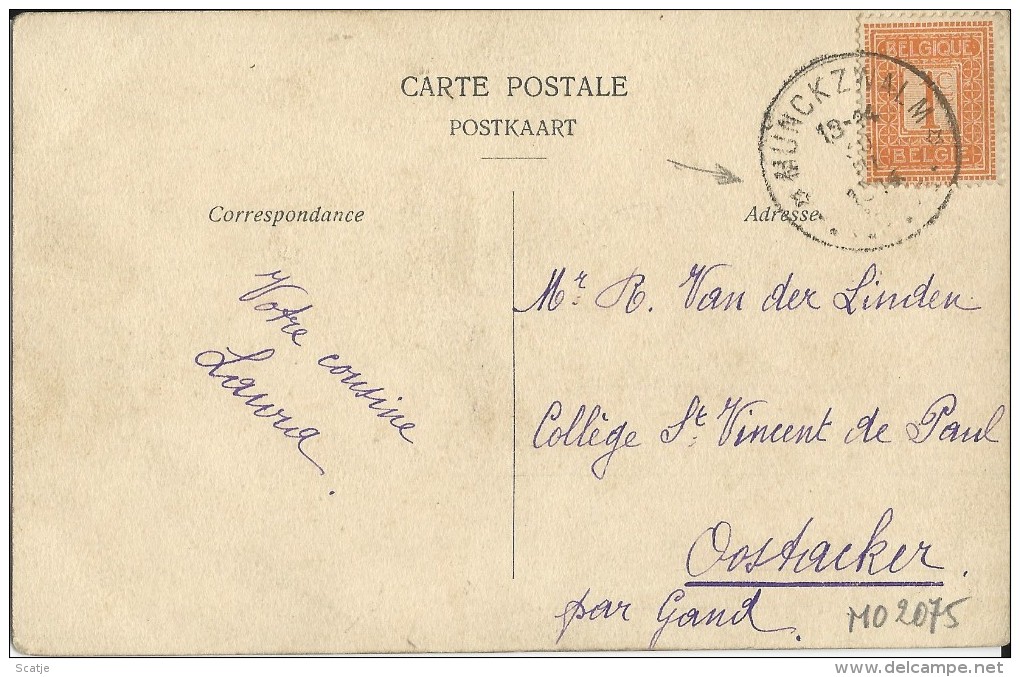 CARTE POSTALE
POSTKAART
BELGIQUE
1c
BELGIË
MUNCKZWALM
Correspondance
Adresse
Votre cousine
Laura.
Mr. R. Van der Linden
Collège St. Vincent de Paul
Oostacker.
par Gand.
MO 2075
Scatje
www.delcampe.net